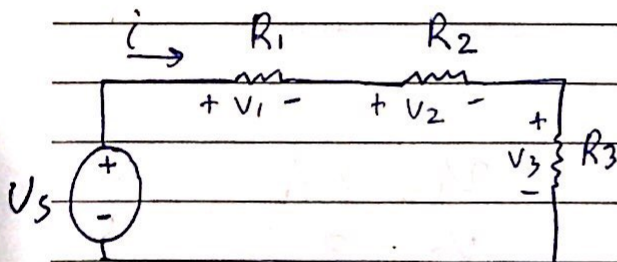 i R1 R2
+ V1 - + V2 -
+
+ V3 R3
Vs -
-